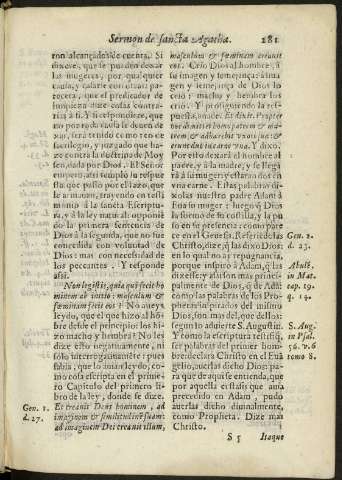 Sermon de sancta Agatha. 281
ron alcançados de cuenta. Si
dixere, que se pueden dexar
las mugeres, por qualquier
causa, y casarse con otras: pa-
recera, que el predicador de
limpieza dize cosas contra-
rias a si. Y si respondiere, que
no por toda causa se deuen de
xar, sera tenido como reo de
sacrilegio, y juzgado que ha-
ze contra la doctrina de Moy
sen, dada por Dios. El Señor
tempero, assi templo su respues
ta que passo por el lazo, que
le auian, trayendo en
timonio a la sancta Escriptu-
ra, y a la ley natural: opponiẽ
do la primera sentencia de
Dios a la segunda. La qual fue
concedida con voluntad de
Dios: mas con necesidad de
los peccantes. Y responde
assi.
Non legistis, quia qui fecit ho
minem ab initio: masculum &
fœminam fecit eos? No aueys
leydo, que el que hizo al hõ-
bre desde el principio: los hi-
zo macho y hembra? No les
dize esto negatiuamente, mas
sólo interrogatiuamẽte: pues
sabia, que lo auian leydo, co-
mo cosa escripta en el prime-
ro Capitulo del primero li-
bro de la ley, donde se dize.
Gen. 1. Et creauit Deus hominem, ad
d. 27. imaginem & similitudinẽ suam:
ad imaginem Dei creauit illum,
masculum & fœminam creauit
eos. Crio Dios al hombre, a
su imagen y semejança: a ima-
gen y semejança de Dios lo
crio: macho y hembra los
crio. Y prosiguiendo la res-
puesta, añade. Et dixit. Propter
hoc dimittet homo patrem & ma-
trem, & adhærebit vxori suæ: &
erunt duo in carne vna. Y dixo.
Por esto dexará el hombre, a
su padre, y a la madre, y se llega
rá a su muger: y estaran dos en
vna carne. Estas palabras di-
xolas nuestro padre Adam a
su a muger: luego q̃ Dios
la formo de su costilla, y la pu
so en su presencia: como pare
ce en el Genesis. Referidelas
Gen. 2.
d. 23.
Christo, dize, q̃ las dixo Dios:
en lo qual no ay repugnancia,
porque inspiro à Adam, q̃ las
Abulẽ.
in Mat.
cap. 19.
q. 14.
dixesse: y assi son mas princi-
palmente de Dios, q̃ de Adã:
como las palabras de los Pro-
phetas inspirados del mismo
Dios, son mas del, que dellos:
segun lo aduierte S. Augustin.
S. Aug.
in Psal.
56. v. 6
tomo 8.
Y como la escriptura testifiq̃,
ser palabras del primer hom-
bre: declara Christo en el Euã
gelio, auerlas dicho Dios: pa-
ra que de aqui se entienda, que
por aquella ecstasis que auia
precedido en Adam, pudo
auerlas dicho diuinalmente,
como Propheta. Dize mas
Christo.
S 5 Itaque